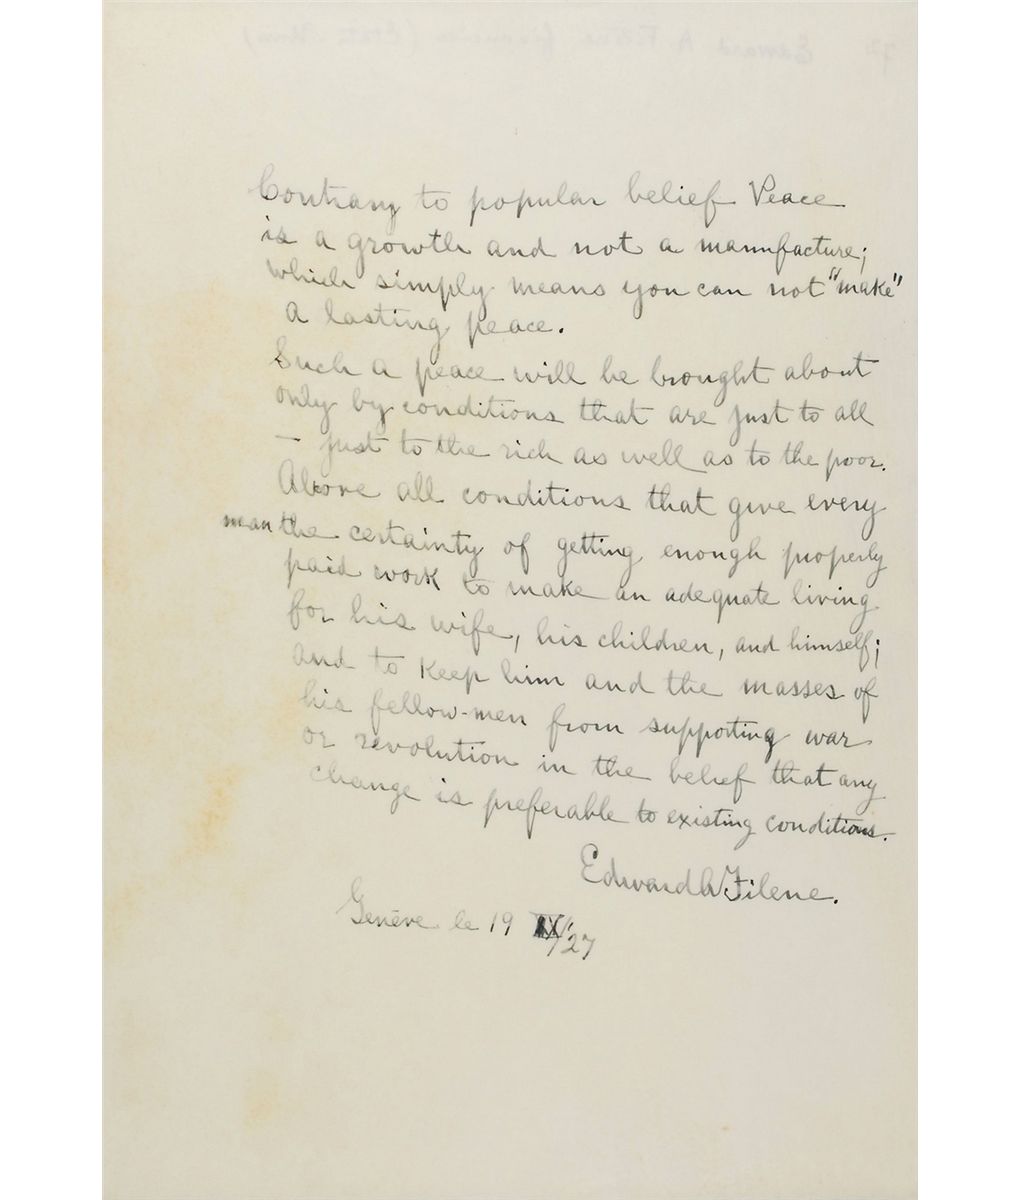 Contrary to popular belief Peace
is a growth and not a manufacture;
which simply means you can not "make"
a lasting peace.
Such a peace will be brought about
only by conditions that are just to all
— just to the rich as well as to the poor.
Above all conditions that give every
man the certainty of getting enough properly
paid work to make an adequate living
for his wife, his children, and himself;
and to keep him and the masses of
his fellow-men from supporting war
or revolution in the belief that any
change is preferable to existing conditions.
Edward A Filene.
Genève le 19 IX/27